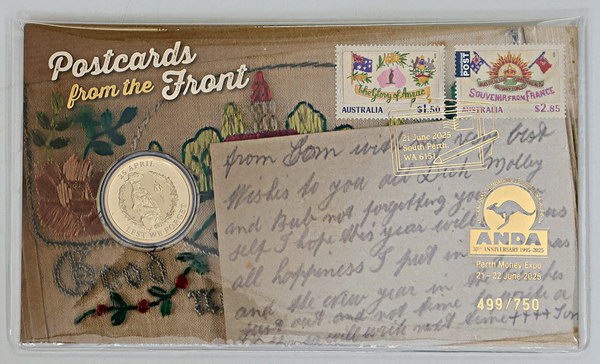 Postcards
from the Front
The Glory of Anzac
AUSTRALIA $1.50
POST
SOUVENIR FROM FRANCE
AUSTRALIA $2.85
21 June 2025
South Perth
WA 6151
25 APRIL
LEST WE FORGET
from Tom with very best
Wishes to you all Dick Molley
and Bub not forgetting you
self I hope this year will
all happiness I put in
and the New year in the
just out and not time
will write next time ++++ Tom
ANDA
30TH ANNIVERSARY 1995-2025
Perth Money Expo
21 - 22 June 2025
499/750